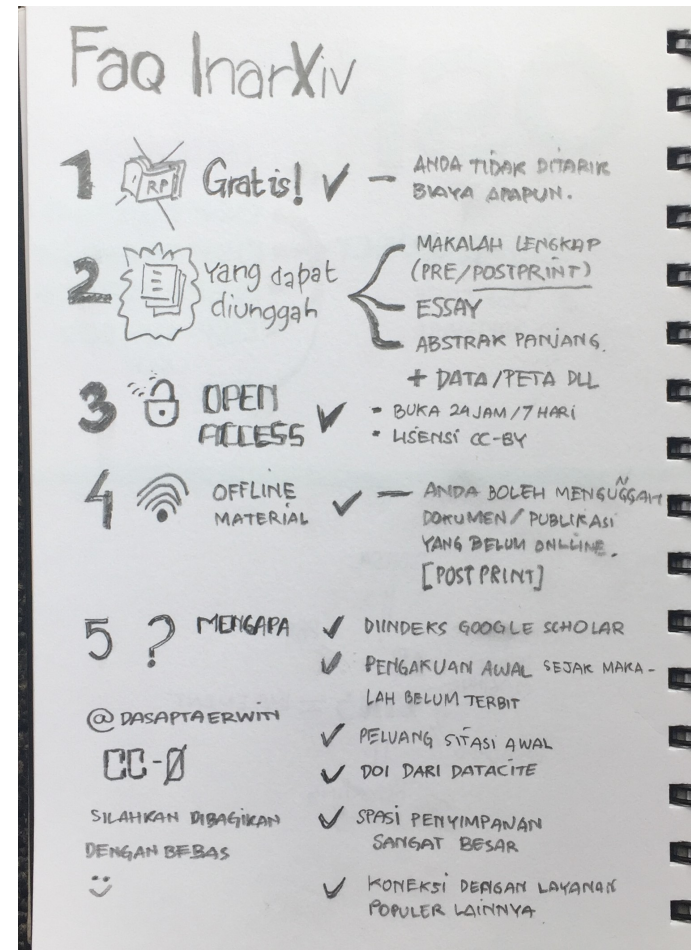 Faq InarXiv
1 RP Gratis! ✓ — ANDA TIDAK DITARIK
BIAYA APAPUN.
2 Yang dapat
diunggah
MAKALAH LENGKAP
(PRE/POSTPRINT)
ESSAY
ABSTRAK PANJANG.
+ DATA/PETA DLL
3 OPEN
ACCESS ✓
• BUKA 24 JAM/7 HARI
• LISENSI CC-BY
4 OFFLINE
MATERIAL ✓ — ANDA BOLEH MENGUNGGAH
DOKUMEN/PUBLIKASI
YANG BELUM ONLLINE.
[POST PRINT]
5 ? MENGAPA
✓ DIINDEKS GOOGLE SCHOLAR
✓ PENGAKUAN AWAL SEJAK MAKA-
LAH BELUM TERBIT
✓ PELUANG SITASI AWAL
✓ DOI DARI DATACITE
✓ SPASI PENYIMPANAN
SANGAT BESAR
✓ KONEKSI DENGAN LAYANAN
POPULER LAINNYA
@DASAPTAERWIN
CC-0
SILAHKAN DIBAGIKAN
DENGAN BEBAS